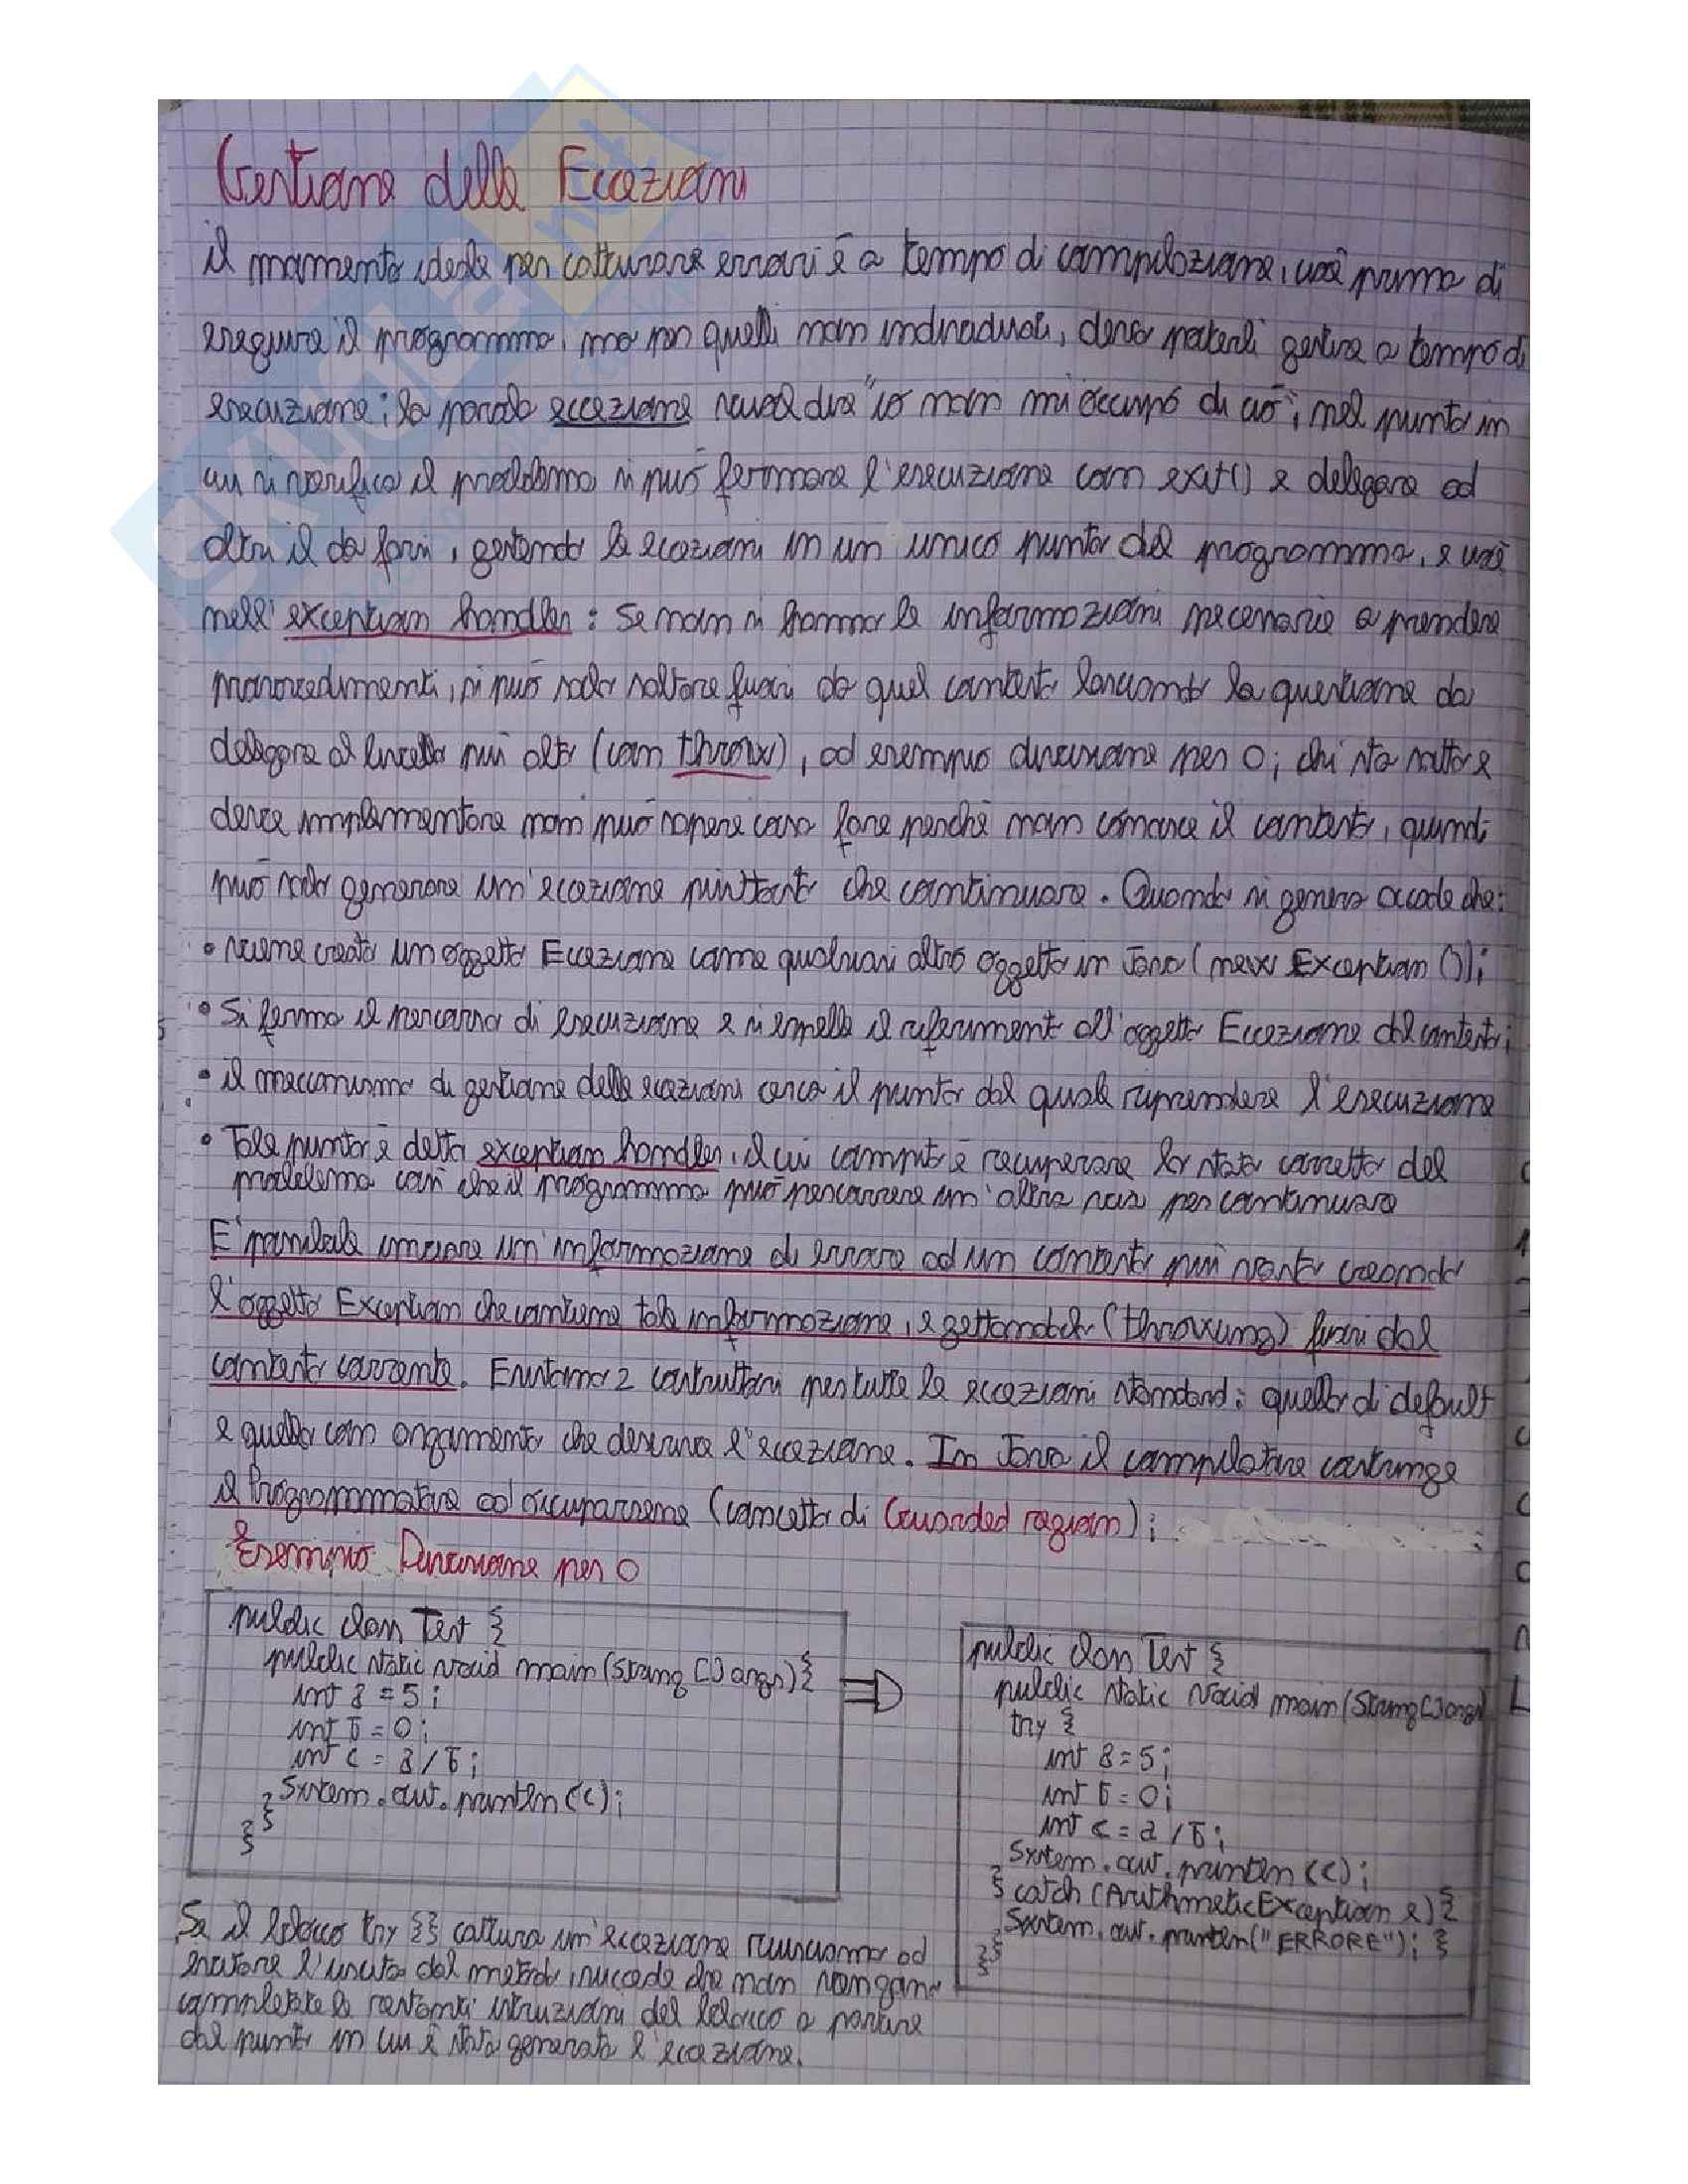 Gestione delle Eccezioni
il momento ideale per catturare errori è a tempo di compilazione, cioè prima di
eseguire il programma, ma per quelli non individuati, devo poterli gestire a tempo di
esecuzione; la parola eccezione vuol dire "io non mi occupo di ciò"; nel punto in
cui si verifica il problema si può fermare l'esecuzione con exit() e delegare ad
altri il da farsi, gestendo le eccezioni in un unico punto del programma, e cioè
nell'exception handler: Se non si hanno le informazioni necessarie a prendere
provvedimenti, si può solo saltare fuori da quel contesto lanciando la questione da
delegare al livello più alto (con throw), ad esempio divisione per 0; chi sta sotto e
deve implementare non può sapere cosa fare perchè non conosce il contesto, quindi
può solo generare un'eccezione piuttosto che continuare. Quando si genera accade che:
• viene creato un oggetto Eccezione come qualsiasi altro oggetto in Java (new Exception());
• Si ferma il percorso di esecuzione e si espelle il riferimento all'oggetto Eccezione dal contesto;
• il meccanismo di gestione delle eccezioni cerca il punto dal quale riprendere l'esecuzione
• Tale punto è detto exception handler, il cui compito è recuperare lo stato corretto del
problema così che il programma può percorrere un'altra via per continuare
E' possibile inviare un'informazione di errore ad un contesto più vasto creando
l'oggetto Exception che contiene tale informazione, e gettandola (throwing) fuori dal
contesto corrente. Esistono 2 costruttori per tutte le eccezioni standard: quello di default
e quello con argomento che descrive l'eccezione. In Java il compilatore costringe
il Programmatore ad occuparsene (concetto di Guarded region);
Esempio Divisione per 0
public class Test {
public static void main(String [] args) {
int a = 5;
int b = 0;
int c = a / b;
System.out.println(c);
}
}
public class Test {
public static void main(String [] args)
try {
int a = 5;
int b = 0;
int c = a / b;
System.out.println(c);
} catch (ArithmeticException e) {
System.out.println("ERRORE"); }
}}
Se il blocco try {} cattura un'eccezione riusciamo ad
evitare l'uscita dal metodo, succede che non vengano
completate le restanti istruzioni del blocco a partire
dal punto in cui è stata generata l'eccezione.